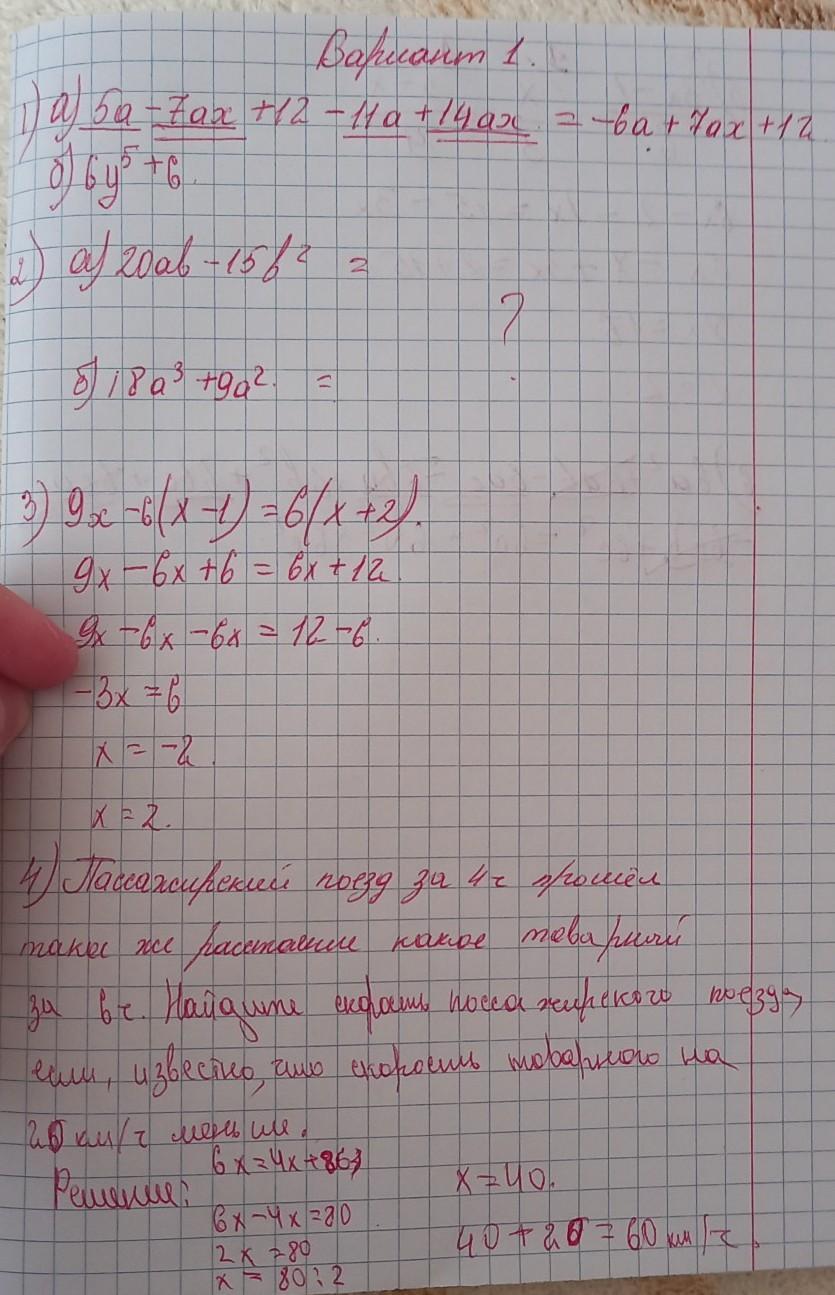 Вариант 1.
1) а) 5a - 7ax + 12 - 11a + 14ax = -6a + 7ax + 12
б) 6y⁵ + 6.
2) а) 20ab - 15b² =
?
б) 18a³ + 9a². =
3) 9x - 6(x - 1) = 6(x + 2).
9x - 6x + 6 = 6x + 12.
9x - 6x - 6x = 12 - 6.
-3x = 6
x = -2.
x = 2.
4) Пассажирский поезд за 4ч прошёл
такое же расстояние какое товарный
за 6ч. Найдите скорость пассажирского поезда,
если, известно, что скорость товарного на
20 км/ч меньше.
Решение:
6x = 4x +
6x - 4x = 80
2x = 80
x = 80 : 2
x = 40.
40 + 20 = 60 км/ч.